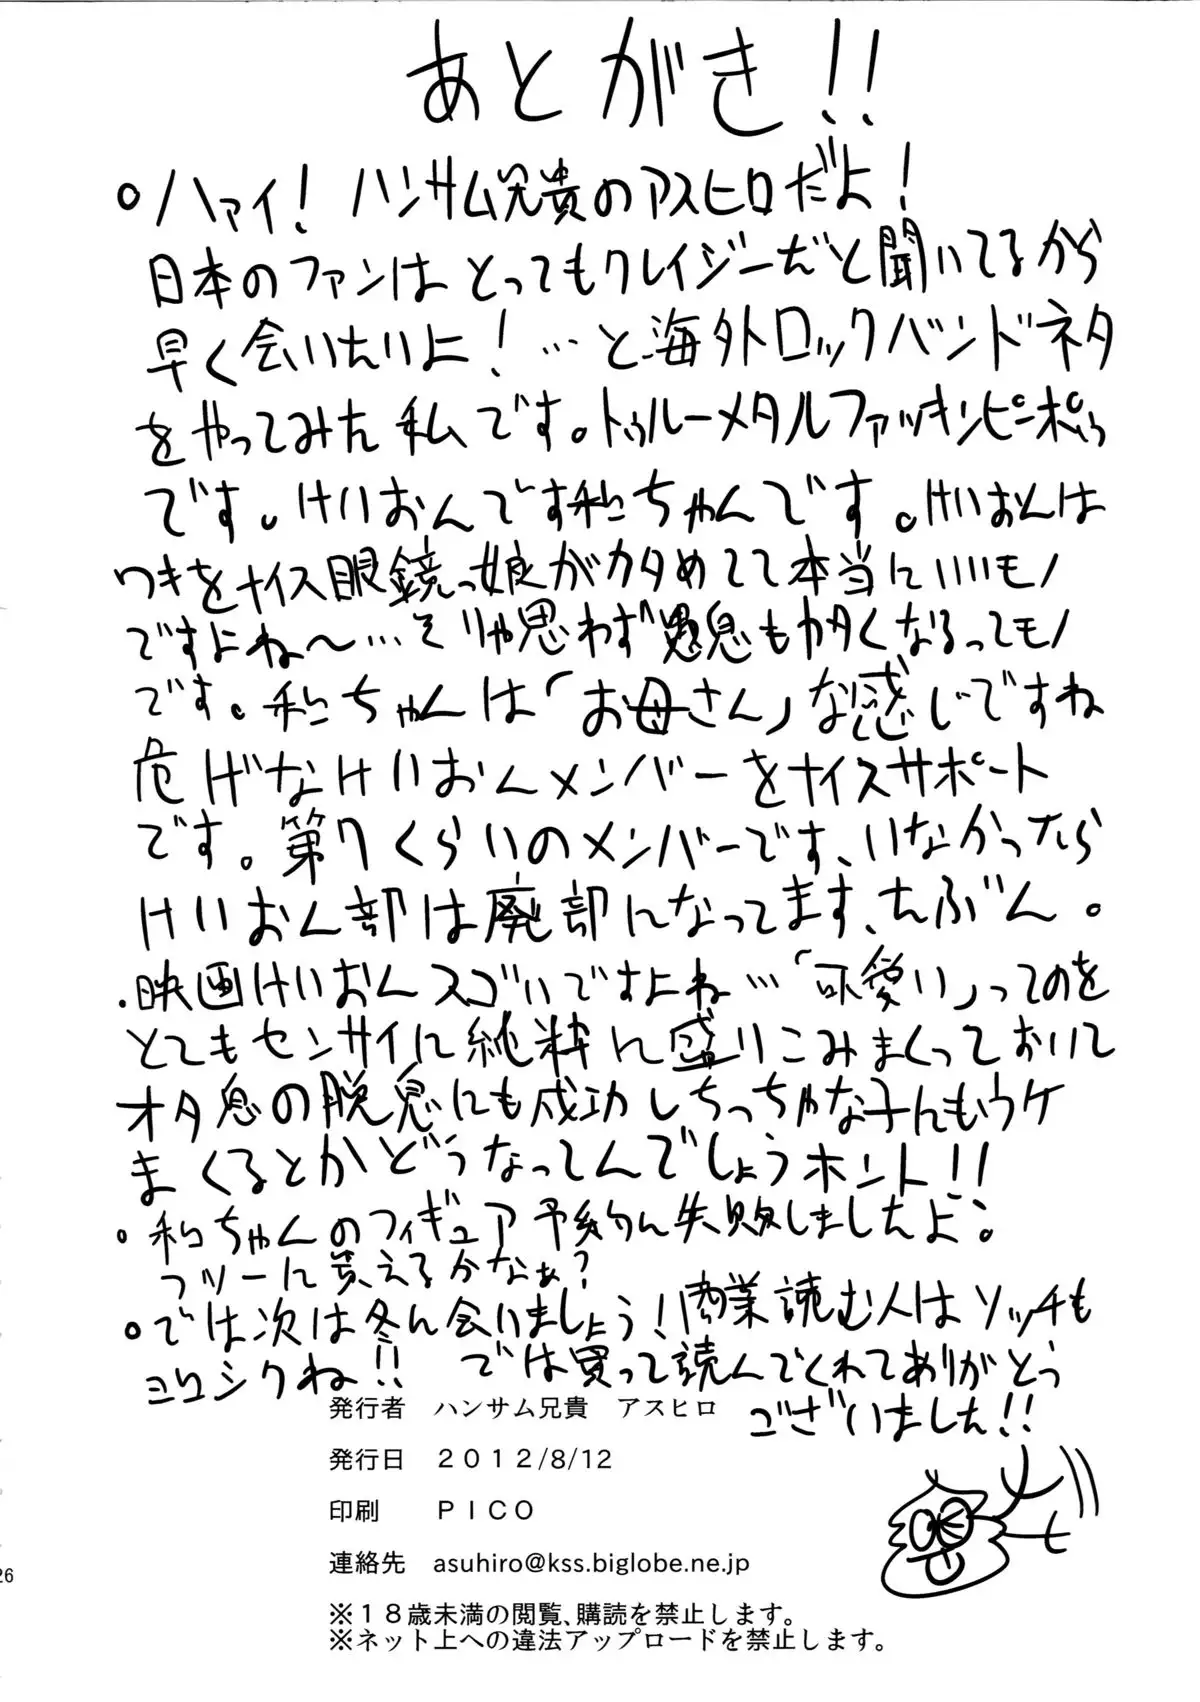 あとがき!!
○ハァイ!ハンサム兄貴のアスヒロだよ!
日本のファンはとってもクレイジーだと聞いてるから
早く会いたいよ!…と海外ロックバンドネタ
をやってみた私です。トゥルーメタルファッキンピーポゥ
です。けいおんです和ちゃんです。けいおんは
ワキをナイス眼鏡っ娘がカタめてて本当にいいモノ
ですよね〜…そりゃ思わず愚息もカタくなるってモノ
です。和ちゃんは「お母さん」な感じですね
危げなけいおんメンバーをナイスサポート
です。第7くらいのメンバーです、いなかったら
けいおん部は廃部になってます、たぶん。
・映画けいおんスゴいですよね…「可愛い」ってのを
とてもセンサイに純粋に盛りこみまくっておいて
オタ臭の脱臭にも成功しちっちゃな子にもウケ
まくるとかどうなってんでしょうホント!!
○和ちゃんのフィギュア予約に失敗しましたよ。
フツーに買えるかなぁ?
○では次は冬に会いましょう!商業読む人はソッチも
ヨロシクね!!
では買って読んでくれてありがとう
ございました!!
発行者 ハンサム兄貴 アスヒロ
発行日 2012/8/12
印刷 PICO
連絡先 asuhiro@kss.biglobe.ne.jp
※18歳未満の閲覧、購読を禁止します。
※ネット上への違法アップロードを禁止します。
26